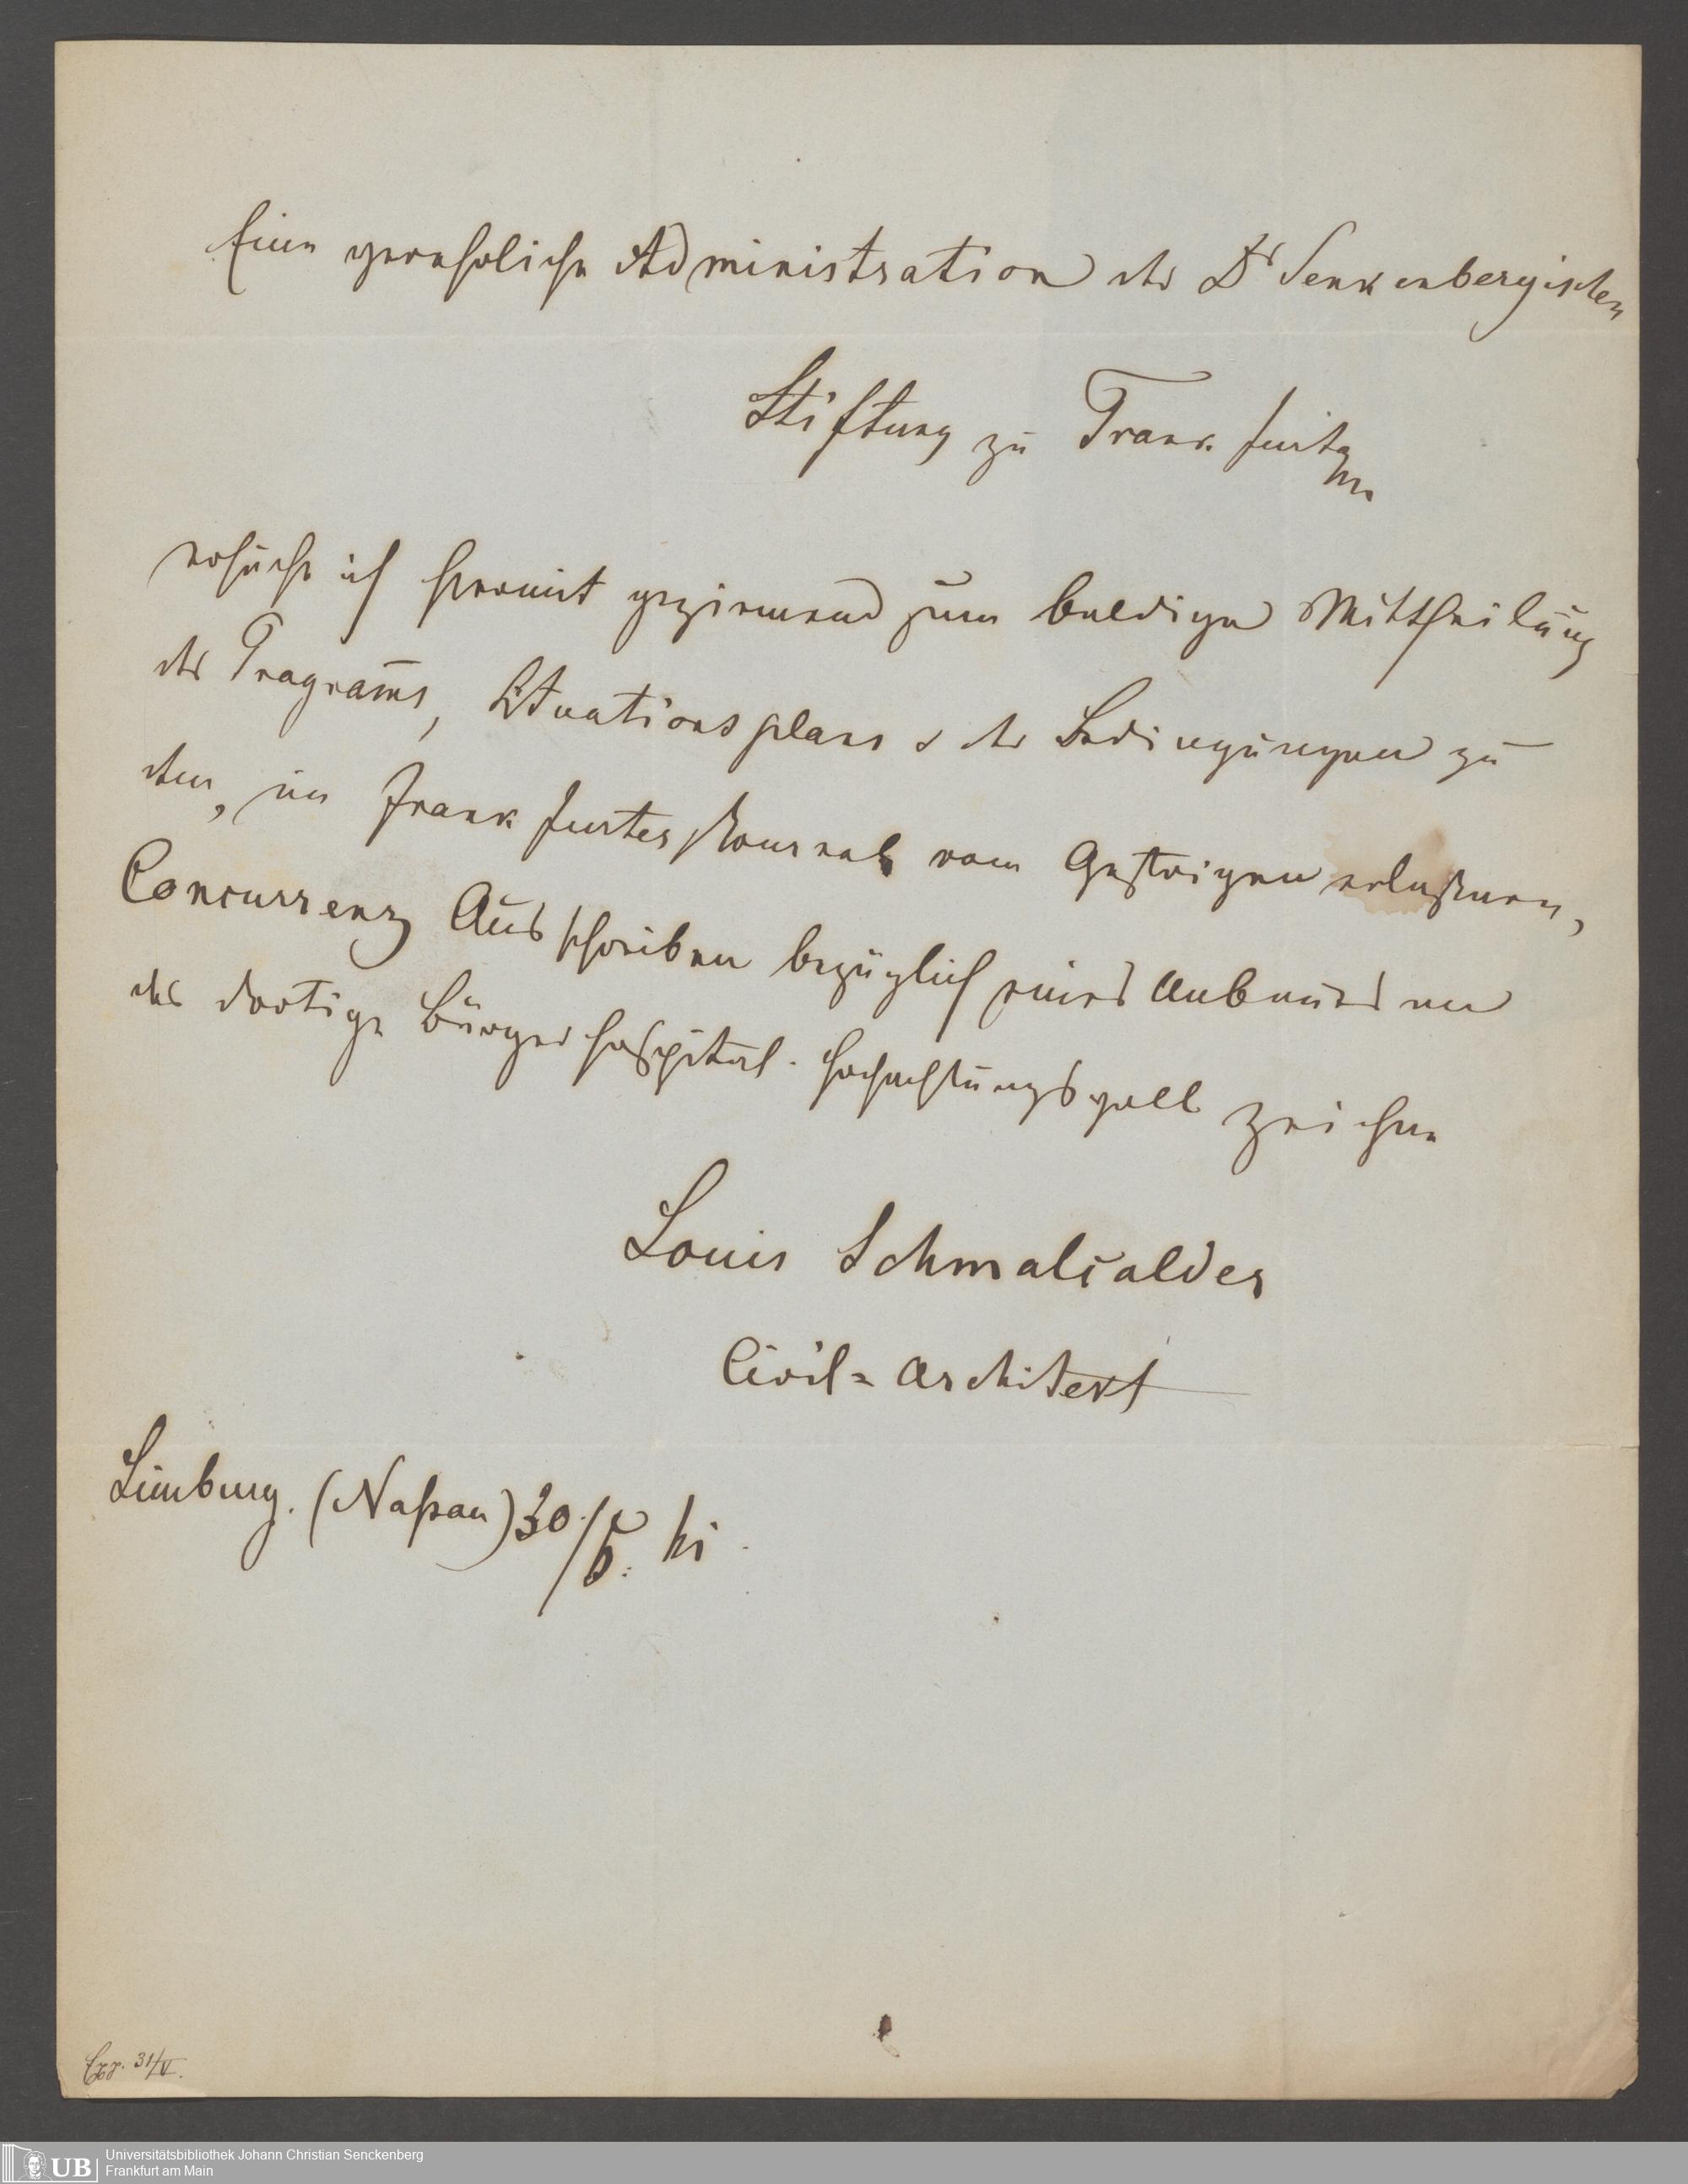 Eine verehrliche Administration der Dr Senkenbergischen
Stiftung zu Frankfurt a/m
ersuche ich hiermit geziemend zum baldigen Mittheilung
des Programms, Situationsplans & der Bedingungen zu
dem, im Frankfurter Journal vom Gestrigen erlaßenen,
Concurrenz Ausschreiben bezüglich eines Anbaues an
das dortige Bürgerhospital. Hochachtungsvoll zeichne
Louis Schmalcalder
Civil=Architekt
Limburg. (Naßau) 30./5.
Exp. 31/V.
UB Universitätsbibliothek Johann Christian Senckenberg
Frankfurt am Main